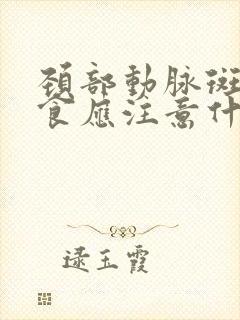 頚部動脉斑
食應注意什
逯玉霞